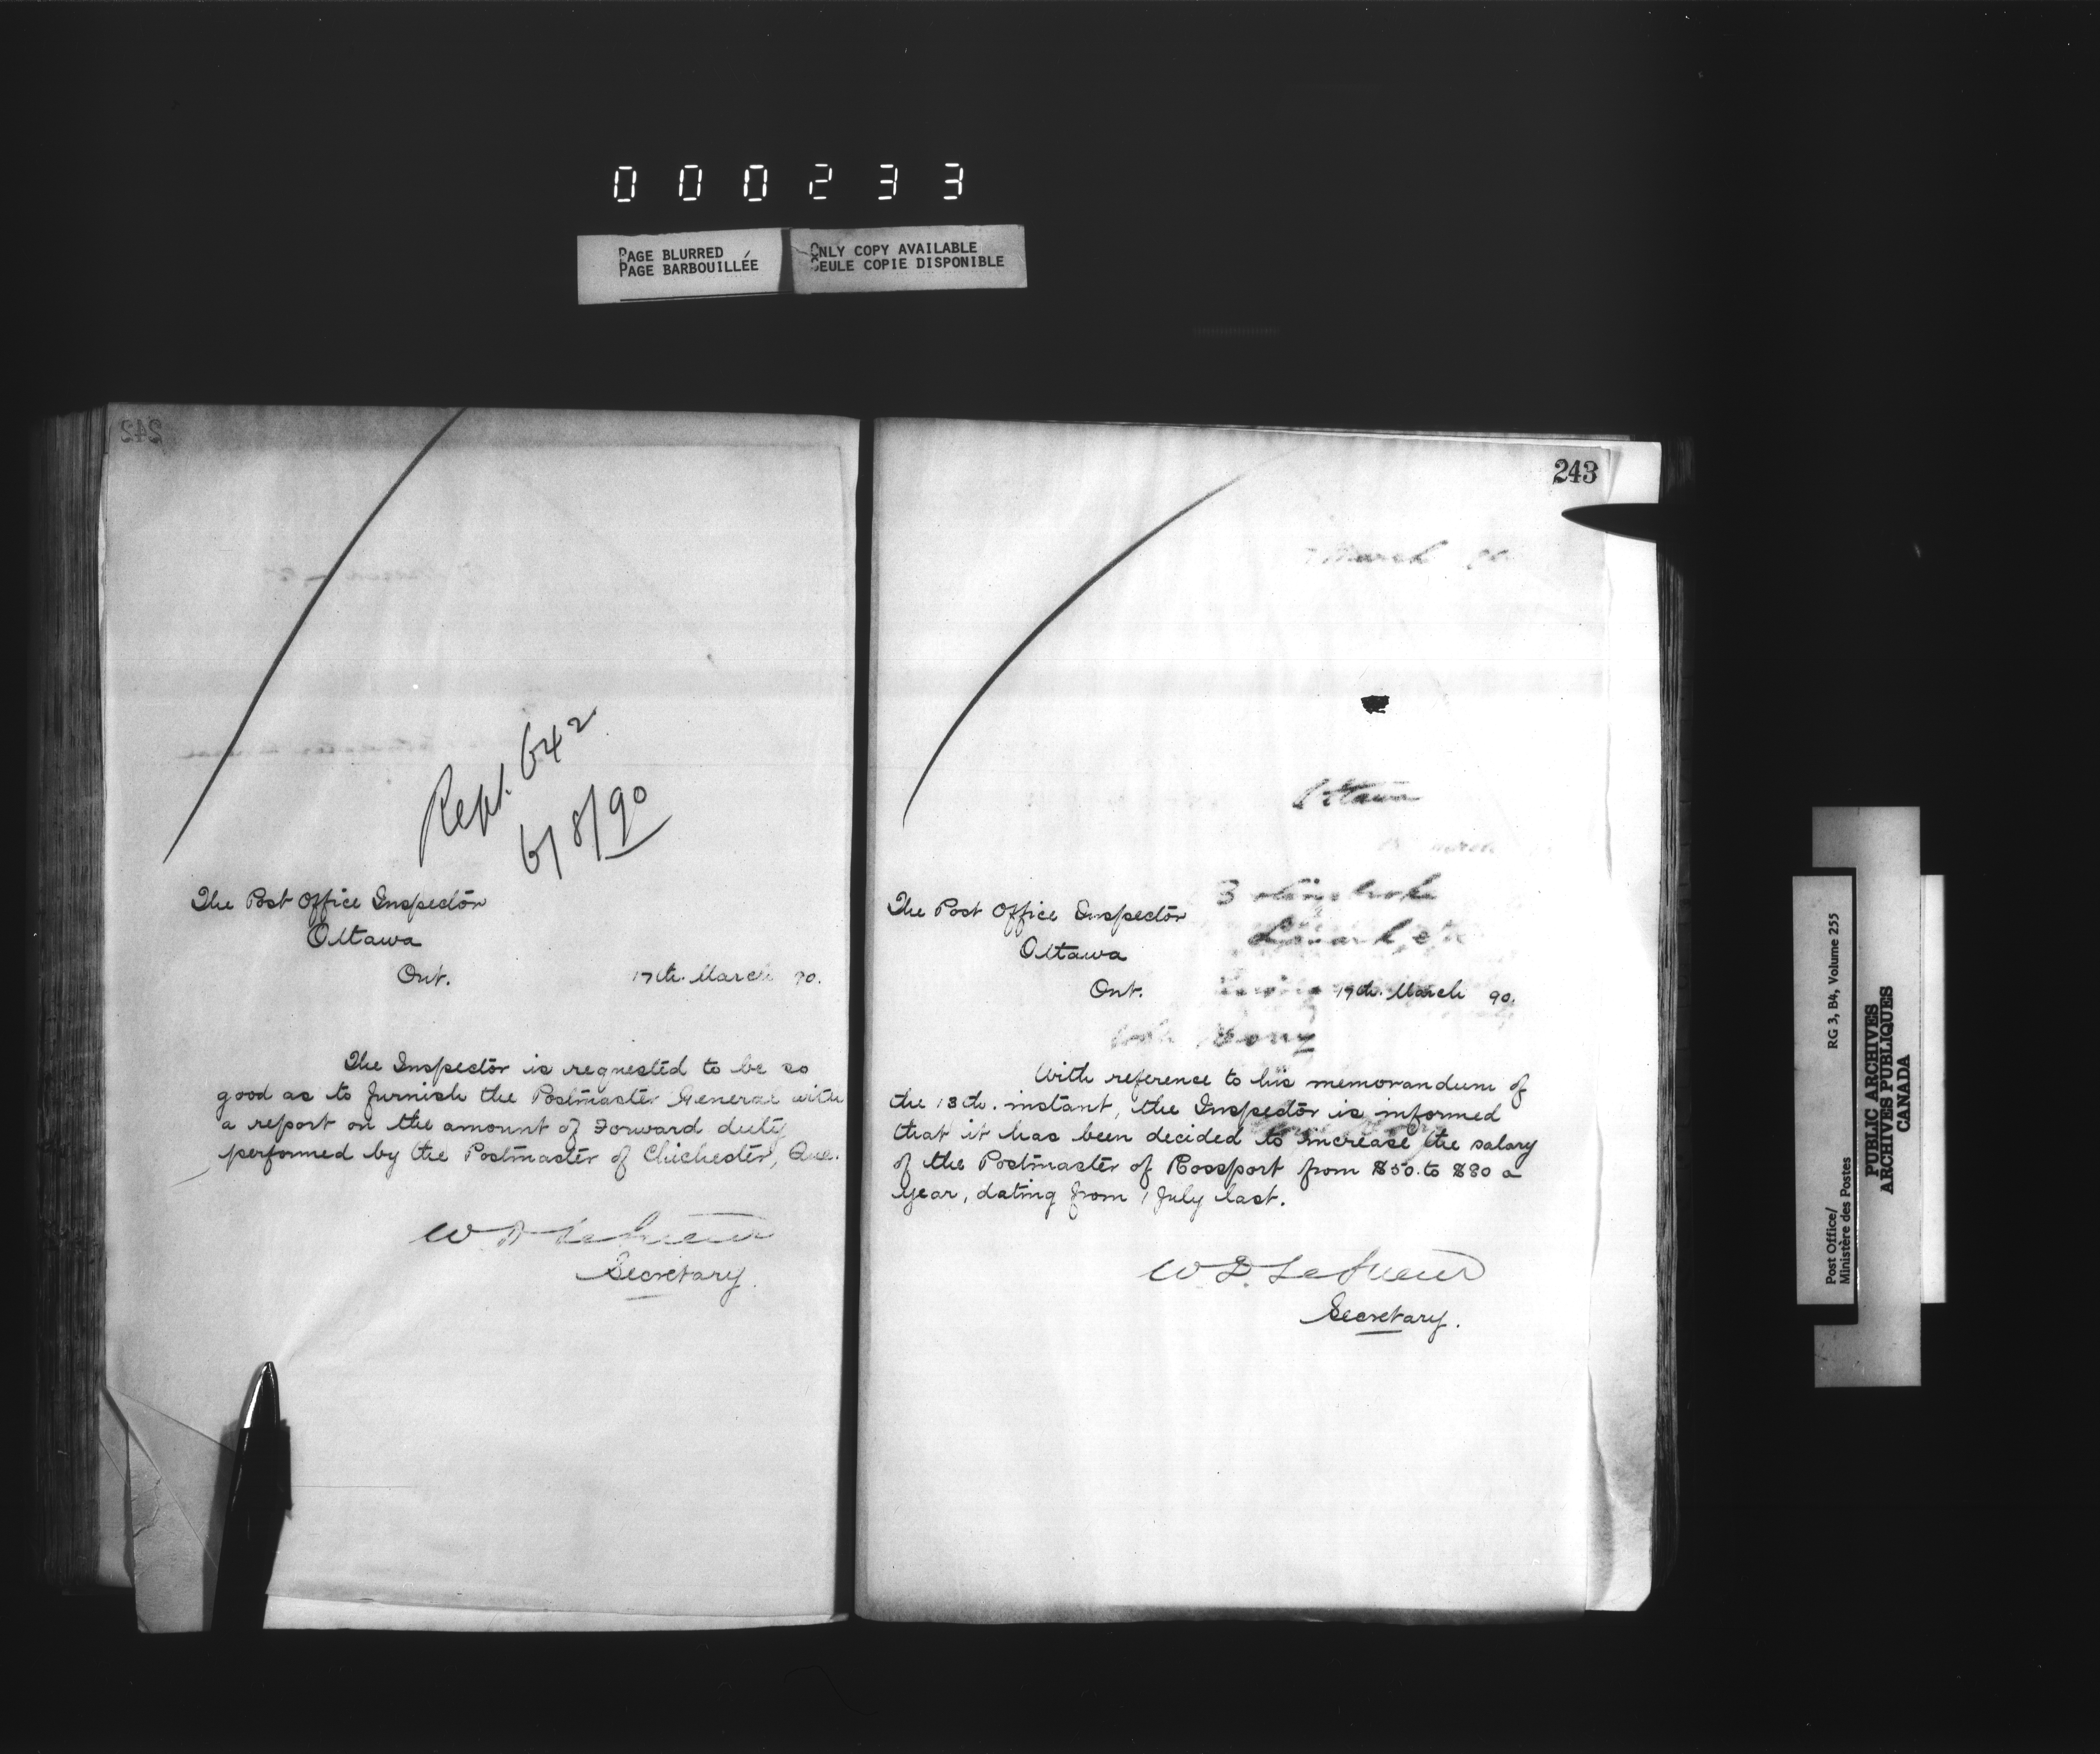 000233
PAGE BLURRED
PAGE BARBOUILLÉE
ONLY COPY AVAILABLE
SEULE COPIE DISPONIBLE
242
Rept. 642
6/8/90
The Post Office Inspector
Ottawa
Ont.
17th. March 90.
The Inspector is requested to be so
good as to furnish the Postmaster General with
a report on the amount of Forward duty
performed by the Postmaster of Chichester, Que.
W D LeSueur
Secretary.
243
March 90
Ottawa
The Post Office Inspector
Ottawa
Ont.
19th. March 90.
With reference to his memorandum of
the 13th. instant, the Inspector is informed
that it has been decided to increase the salary
of the Postmaster of Rossport from $50. to $80 a
year, dating from 1 July last.
W D LeSueur
Secretary.
Post Office/
Ministère des Postes
RG 3, B4, Volume 255
PUBLIC ARCHIVES
ARCHIVES PUBLIQUES
CANADA